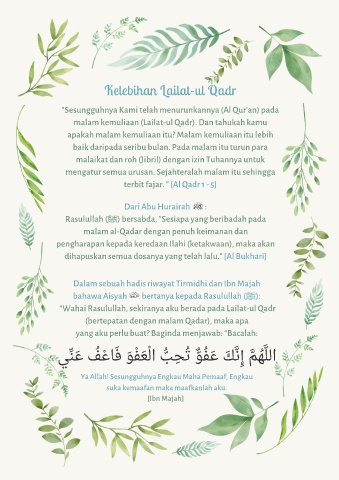 Kelebihan Lailat-ul Qadr
"Sesungguhnya Kami telah menurunkannya (Al Qur'an) pada
malam kemuliaan (Lailat-ul Qadr). Dan tahukah kamu
apakah malam kemuliaan itu? Malam kemuliaan itu lebih
baik daripada seribu bulan. Pada malam itu turun para
malaikat dan roh (Jibril) dengan izin Tuhannya untuk
mengatur semua urusan. Sejahteralah malam itu sehingga
terbit fajar. " [Al Qadr 1 - 5]
Dari Abu Hurairah :
Rasulullah (ﷺ) bersabda, "Sesiapa yang beribadah pada
malam al-Qadar dengan penuh keimanan dan
pengharapan kepada keredaan Ilahi (ketakwaan), maka akan
dihapuskan semua dosanya yang telah lalu." [Al Bukhari]
Dalam sebuah hadis riwayat Tirmidhi dan Ibn Majah
bahawa Aisyah bertanya kepada Rasulullah (ﷺ):
"Wahai Rasulullah, sekiranya aku berada pada Lailat-ul Qadr
(bertepatan dengan malam Qadar), maka apa
yang aku perlu buat? Baginda menjawab: "Bacalah:
اللَّهُمَّ إِنَّكَ عَفُوٌّ تُحِبُّ الْعَفْوَ فَاعْفُ عَنِّي
Ya Allah! Sesungguhnya Engkau Maha Pemaaf, Engkau
suka kemaafan maka maafkanlah aku.
[Ibn Majah]